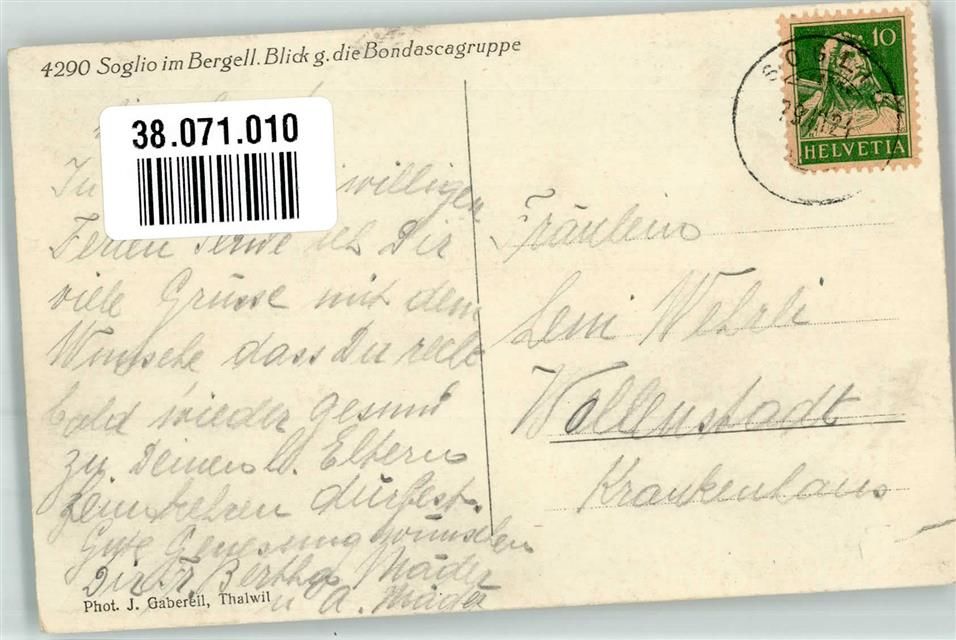 4290 Soglio im Bergell. Blick g. die Bondascagruppe
38.071.010
10
HELVETIA
SOGLIO
In willigen
Ferien sende ich Dir
viele Grüsse mit dem
Wunsche dass Du recht
bald wieder gesund
zu Deinen lb. Eltern
heimkehren dürfest.
Gute Genesung wünschen
Dir Fr. Bertha Mäder
u A. Mäder
Fräulein
Leni Wehrli
Wallenstadt
Krankenhaus
Phot. J. Gaberell, Thalwil